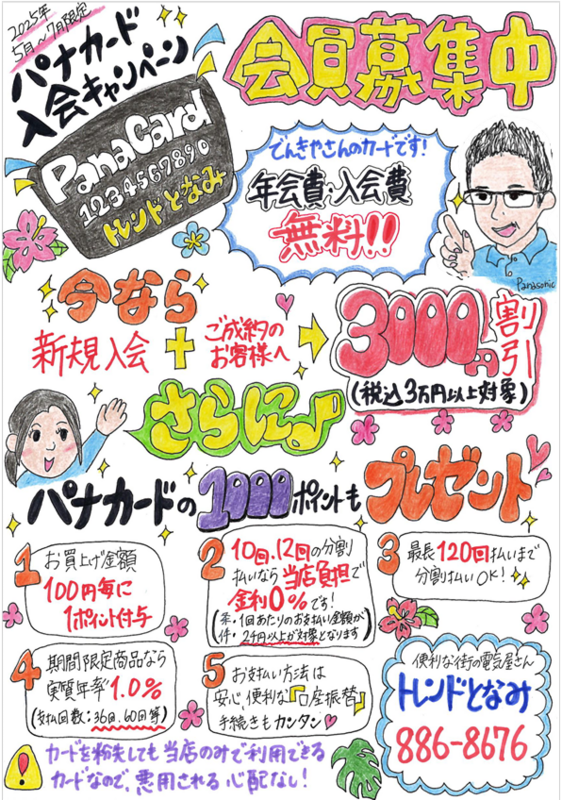 2025年
5月~7月限定
パナカード
入会キャンペーン
会員募集中
PanaCard
1234567890
トレンドとなみ
でんきやさんのカードです!
年会費・入会費
無料!!
Panasonic
今なら
新規入会
+
ご成約の
お客様へ
3000円
割引
(税込3万円以上対象)
さらに♪
パナカードの1000ポイントもプレゼント
1 お買上げ金額
100円毎に
1ポイント付与
2 10回、12回の分割
払いなら当店負担で
金利0%です!
(条件・1回あたりのお支払い金額が
2千円以上が対象となります)
3 最長120回払いまで
分割払いOK!
4 期間限定商品なら
実質年率1.0%
(支払回数:36回、60回等)
5 お支払い方法は
安心、便利な『口座振替』
手続きもカンタン♡
便利な街の電気屋さん
トレンドとなみ
886-8676
! カードを紛失しても当店のみで利用できる
カードなので、悪用される心配なし!